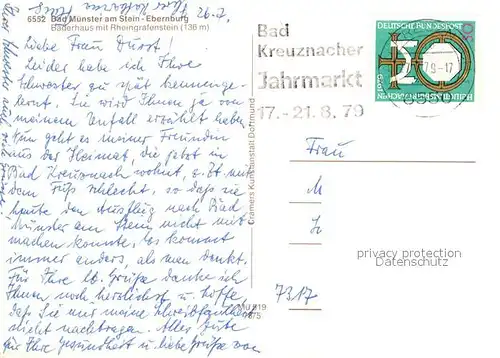 6552 Bad Münster am Stein - Ebernburg 26.7.
Bäderhaus mit Rheingrafenstein (136 m)
Liebe Frau Durst!
Leider habe ich Ihre
Schwester zu spät kennenge-
lernt. Sie wird Ihnen ja von
meinem Unfall erzählt haben.
Nun geht es meiner Freundin
aus der Heimat, die jetzt in
Bad Kreuznach wohnt, z. Zt. mit
dem Fuß schlecht, so daß sie
heute den Ausflug nach Bad
Münster am Stein nicht mit-
machen konnte. Es kommt
immer anders, als man denkt.
Für Ihre lb. Grüße danke ich
Ihnen noch herzlichst u. hoffe
daß Sie mir meine Schreibfaulheit
nicht nachtragen. Alles Gute
für Ihre Gesundheit u. liebe Grüße von
Cramers Kunstanstalt Dortmund
Bad
Kreuznacher
Jahrmarkt
17.-21.8.79
DEUTSCHE BUNDESPOST
50
79-17
Frau
M
privacy protection
Datenschutz
7317